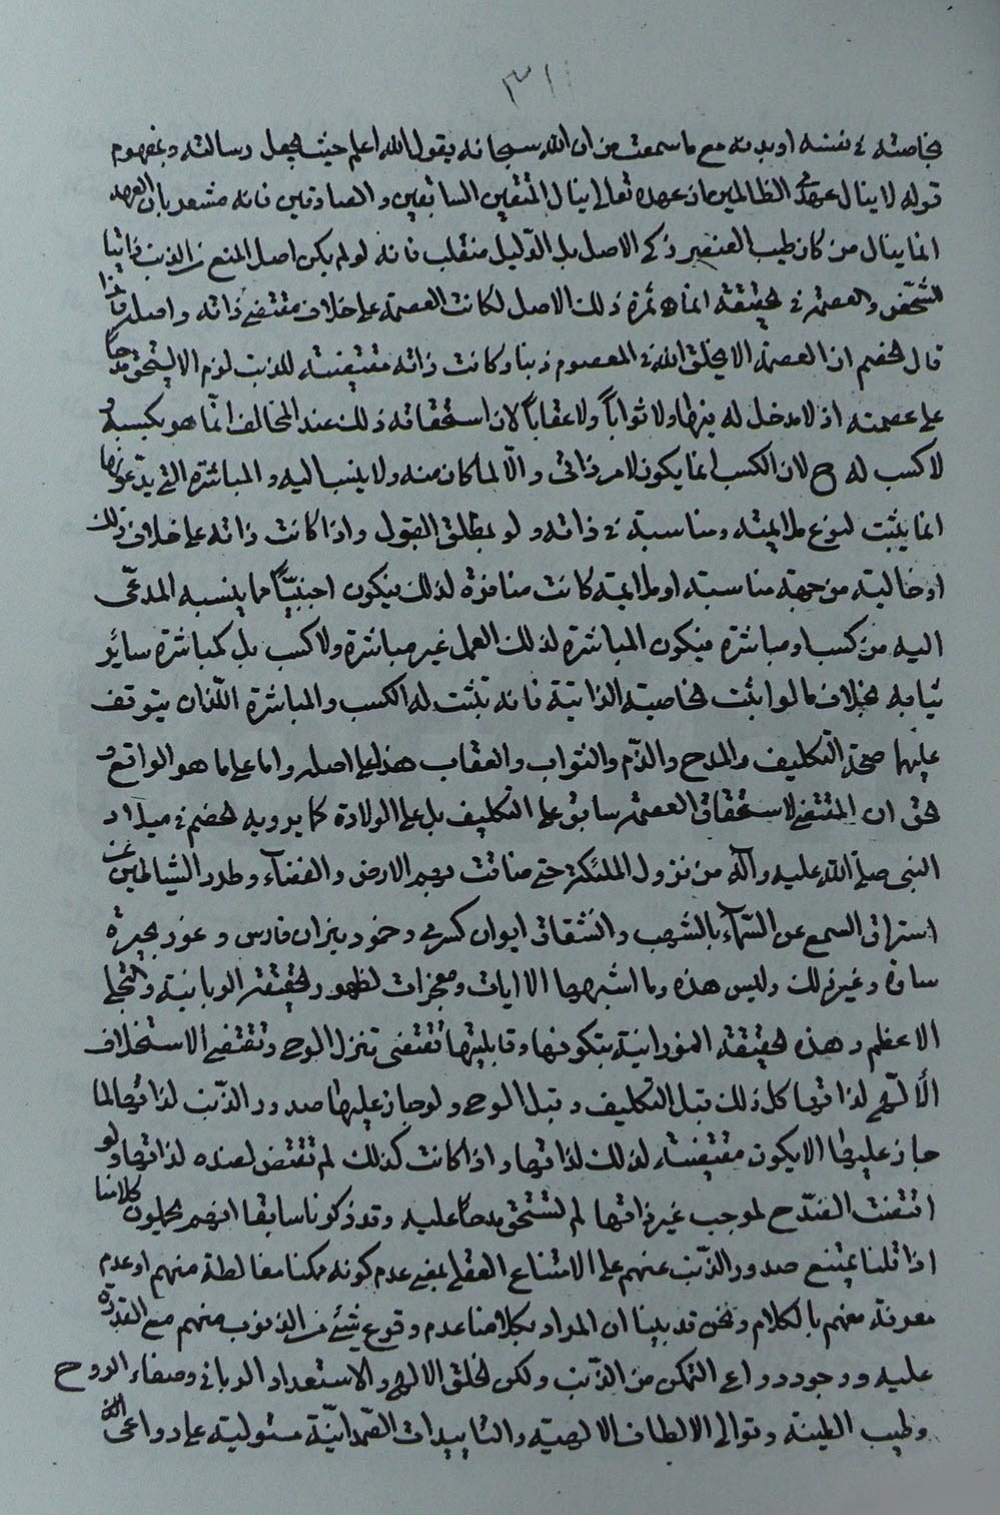 ٣١
بخاصته في نفسه او بدنه مع ما سمعت من ان الله سبحانه يقول الله اعلم حيث يجعل رسالته وبمفهوم
قوله لا ينال عهدي الظالمين ان عهده تعالى ينال المتقين السابقين والصادقين فانه مشعر بان العهد
انما ينال من كان طيب العنصر زكي الاصل بل الدليل منقلب فانه لو لم يكن اصل المنع من الذنب ذاتيا
للشخص والعصمة في الحقيقة انما هي ثمرة ذلك الاصل لكانت العصمة على خلاف مقتضى ذاته واصله فاذا
قال الخصم ان العصمة الا يخلق الله في المعصوم ذنبا وكانت ذاته مقتضية للذنب لزم الا يستحق مدحا
على عصمته اذ لا مدخل له فيها ولا ثواباً ولا عقاباً لان استحقاقه ذلك عند المخالف انّما هو بكسبه و
لا كسب له ح لان الكسب انما يكون لامر ذاتي والّا لما كان منه ولا ينسب اليه والمباشرة التي يدّعونها
انما يثبت لنوع ملايمته ومناسبته في ذاته ولو بمطلق القبول واذا كانت ذاته على خلاف ذلك
او خالية من جهة مناسبته او ملايمة كانت منافرة لذلك فيكون اجنبيّاً مما ينسبه المدعى
اليه من كسب او مباشرة فيكون المباشرة لذلك العمل غير مباشرة ولا كسب بل كمباشرة سائر
ثيابه بخلاف ما لو اثبت بخاصيته الذاتية فانه تثبت له الكسب والمباشرة اللذان يتوقف
عليهما صحة التكليف والمدح والذم والثواب والعقاب هذا على اصله واما على ما هو الواقع و
الحق ان المقتضى لاستحقاق العصمة سابق على التكليف بل على الولادة كما يرويه الخصم في ميلاد
النبى صلى الله عليه وآله من نزول الملئكة حتى ضاقت بهم الارض والفضاء وطرد الشياطين عن
استراق السمع عن السّماء بالشهب وانشقاق ايوان كسرى وخمود نيران فارس وغور بحيرة
ساوة وغير ذلك وليس هذه وما اشبهها الا ايات ومعجزات لظهور الحقيقة الربانية والتجلي
الاعظم وهذه الحقيقة النورانية بتكونها وقابليتها تقتضى تنزل الوحي وتقتضي الاستخلاف
الالهي لذاتها كل ذلك قبل التكليف وقبل الوحي ولو جاز عليها صدور الذنب لذاتها لما
جاز عليها الا يكون مقتضية لذلك لذاتها واذا كانت كذلك لم تقتض لضده لذاتها ولو
اقتضت القدح لموجب غير ذاتها لم تستحق مدحا عليه وقد ذكرنا سابقا انهم يحملون كلامنا
اذا قلنا يمتنع صدور الذّنب عنهم على الامتناع العقلي بمعنى عدم كونه ممكنا مغالطة منهم او عدم
معرفة منهم بالكلام ونحن قد بينا ان المراد بكلامنا عدم وقوع شئ من الذنوب منهم مع القدرة
عليه ووجود دواعي التمكن من الذّنب ولكن الخلق الالهي والاستعداد الرباني وصفاء الروح
وطيب الطينة وتوالي الالطاف الالهية والتاييدات الصمدانيّة مستولية على دواعى